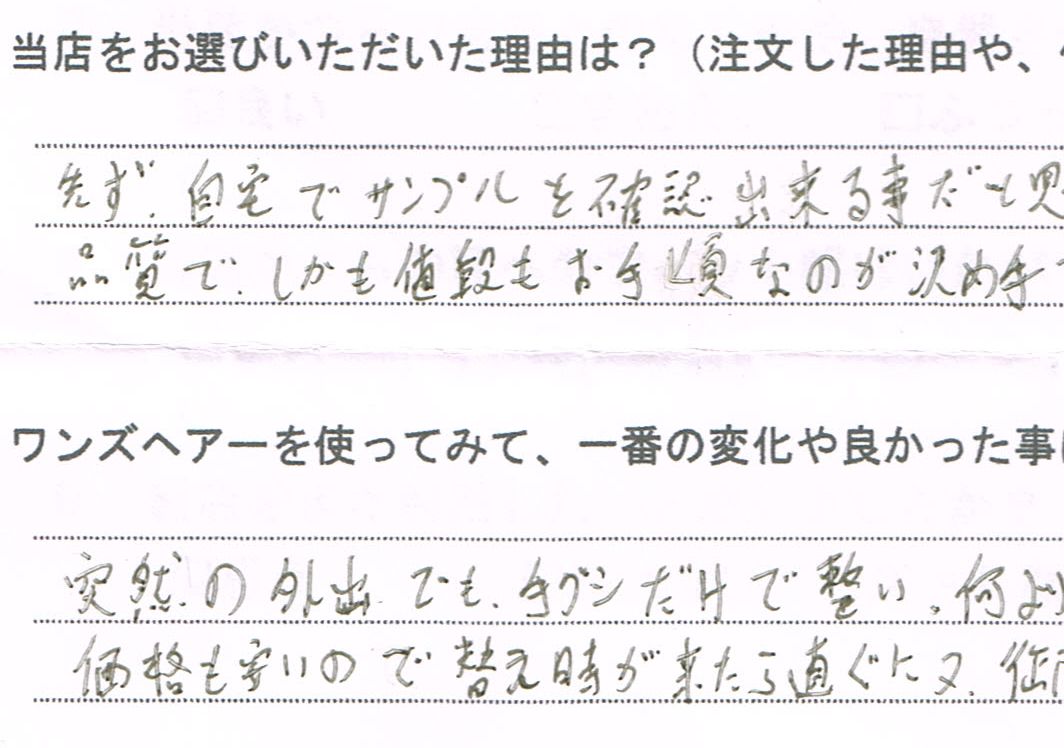 当店をお選びいただいた理由は？（注文した理由や、
先ず、自宅でサンプルを確認出来る事だと思
品質で、しかも値段もお手頃なのが決め手
ワンズヘアーを使ってみて、一番の変化や良かった事
突然の外出でも、手グシだけで整い、何より
価格も安いので替え時が来たら直ぐに又、